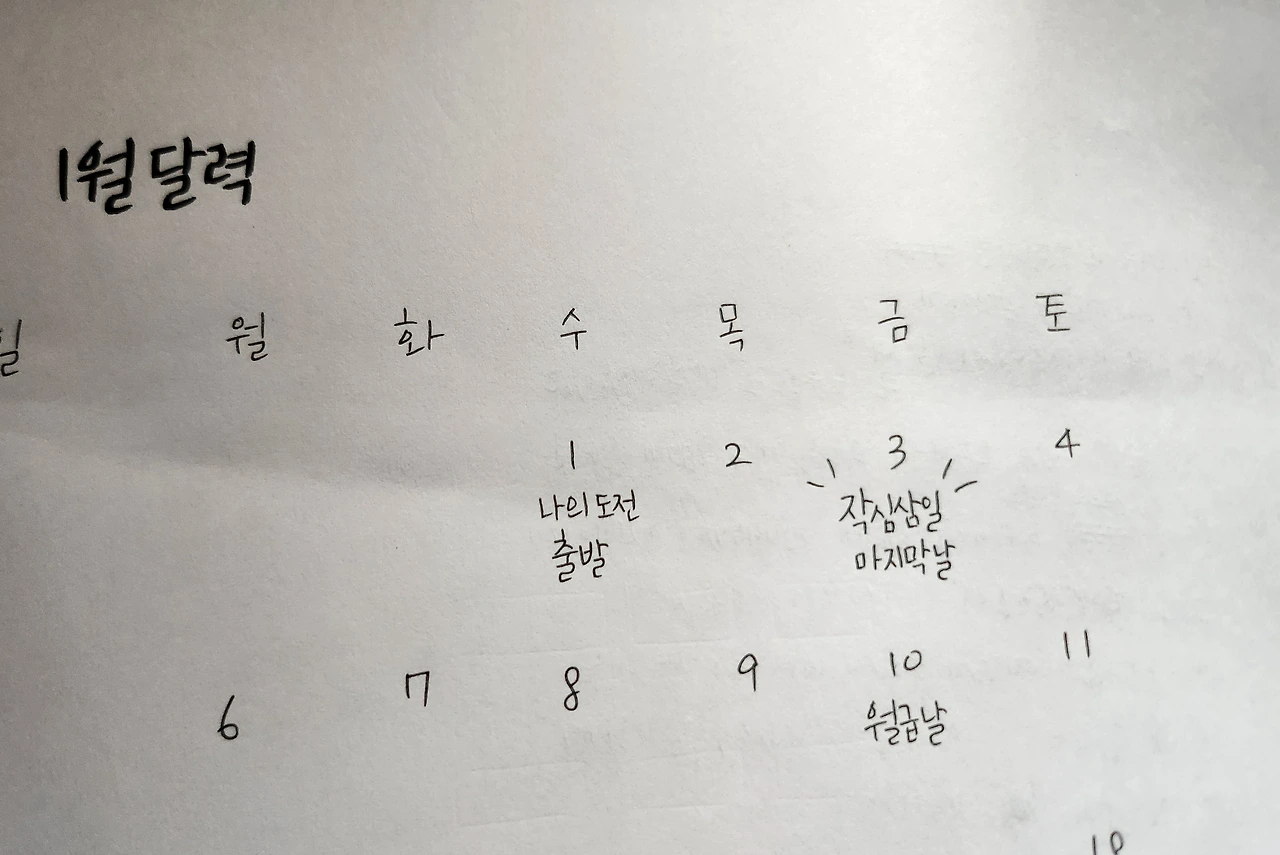 1월 달력
일 월 화 수 목 금 토
1 2 3 4
나의 도전 작심삼일
출발 마지막날
6 7 8 9 10 11
월급날
18